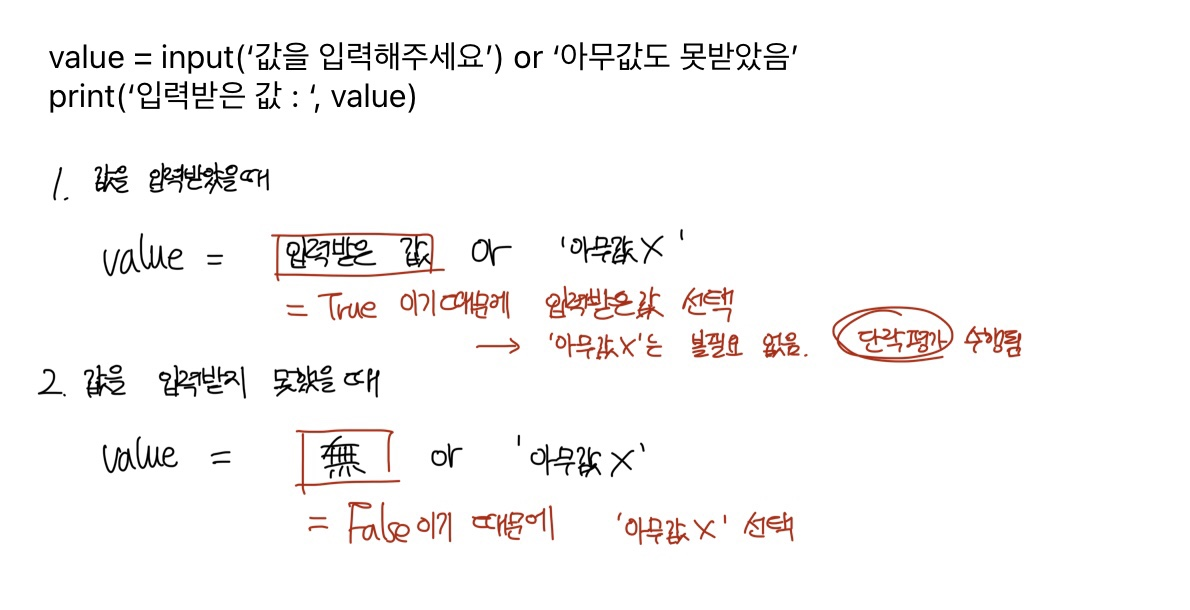 value = input(‘값을 입력해주세요’) or ‘아무값도 못받았음’
print(‘입력받은 값 : ‘, value)
1. 값을 입력받았을때
value = 입력받은 값 or '아무값X'
= True 이기때문에 입력받은값 선택
→ '아무값X'는 볼필요 없음. 단락평가 수행됨
2. 값을 입력받지 못했을때
value = 無 or '아무값X'
= False이기 때문에 '아무값X' 선택